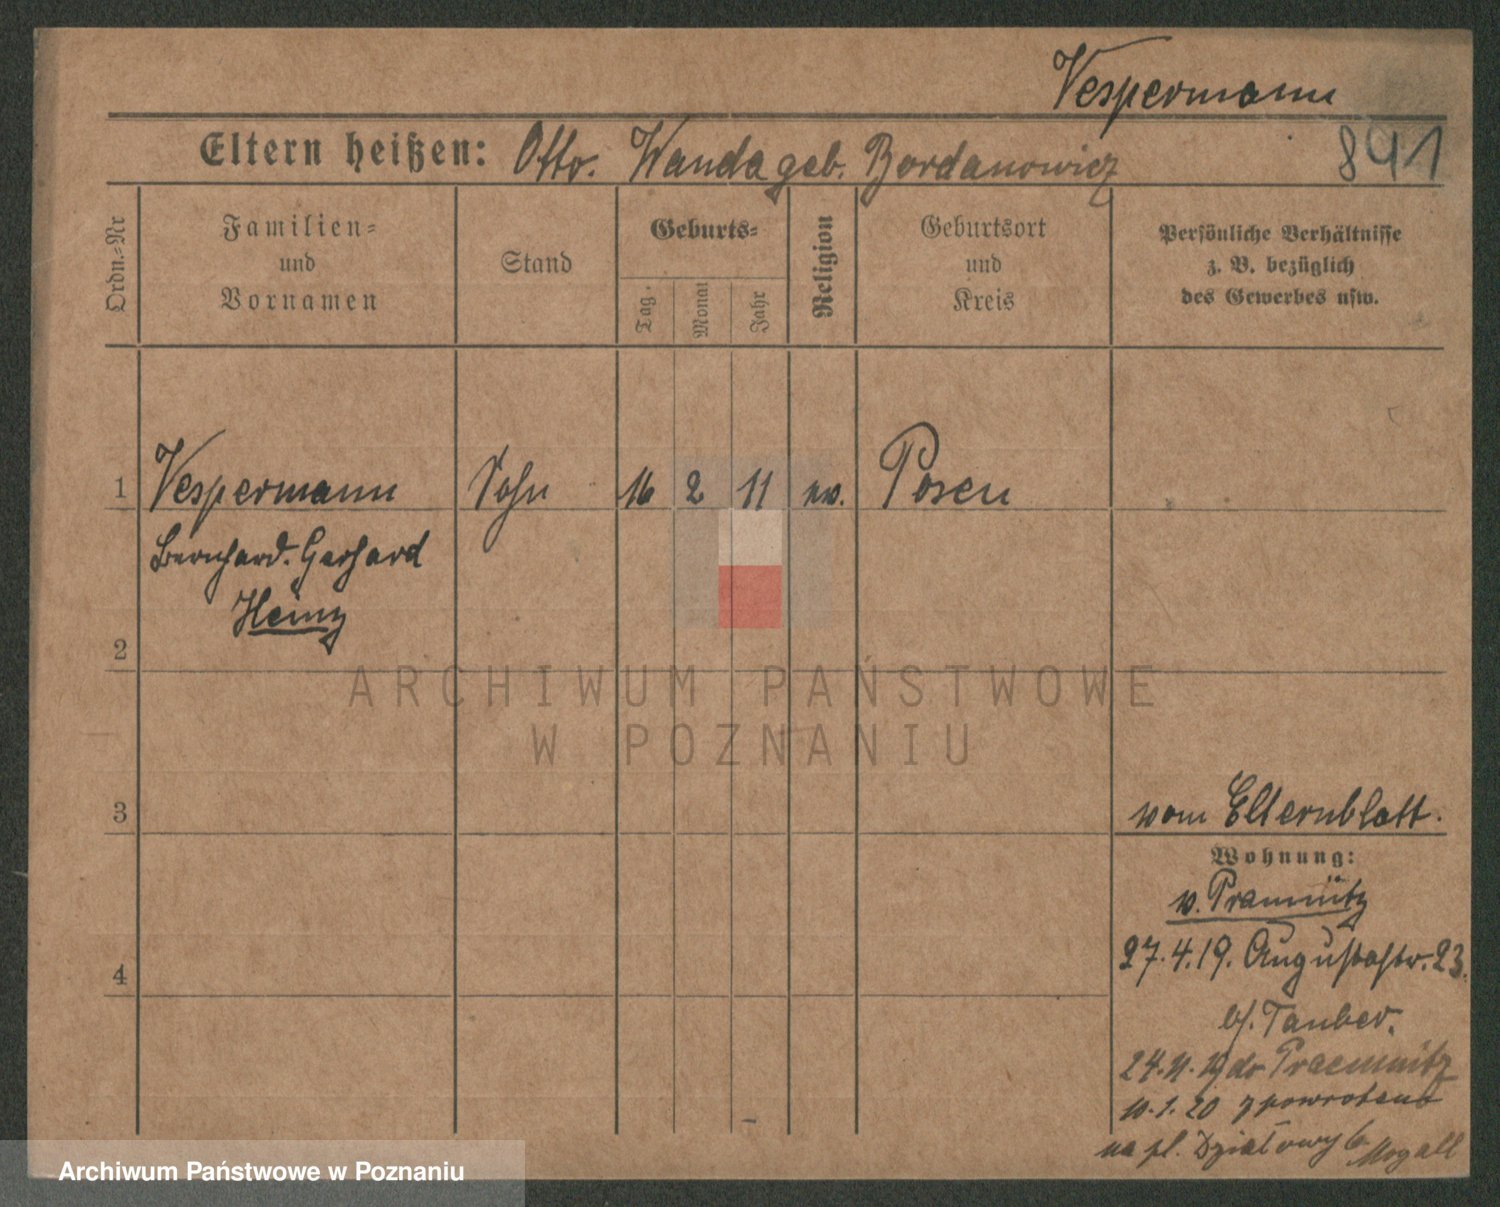 Vespermann
Eltern heißen: Otto. Wanda geb. Bordanowicz
841
Ordn.=Nr
Familien=
und
Vornamen
Stand
Geburts=
Tag.
Monat
Jahr
Religion
Geburtsort
und
Kreis
Persönliche Verhältnisse
z. B. bezüglich
des Gewerbes usw.
1 Vespermann Sohn 16 2 11 ev. Posen
Bernhard. Gerhard
Heinz
2
ARCHIWUM PAŃSTWOWE
W POZNANIU
3
vom Elternblatt.
Wohnung:
4
27.4.19. Augustastr. 23.
b/. Tauber.
10.1.20 z powrotem
na pl. Działowy 6
Archiwum Państwowe w Poznaniu